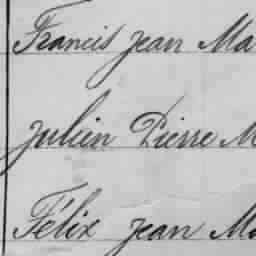 Francis Jean Ma
Julien Pierre M
Félix Jean Ma